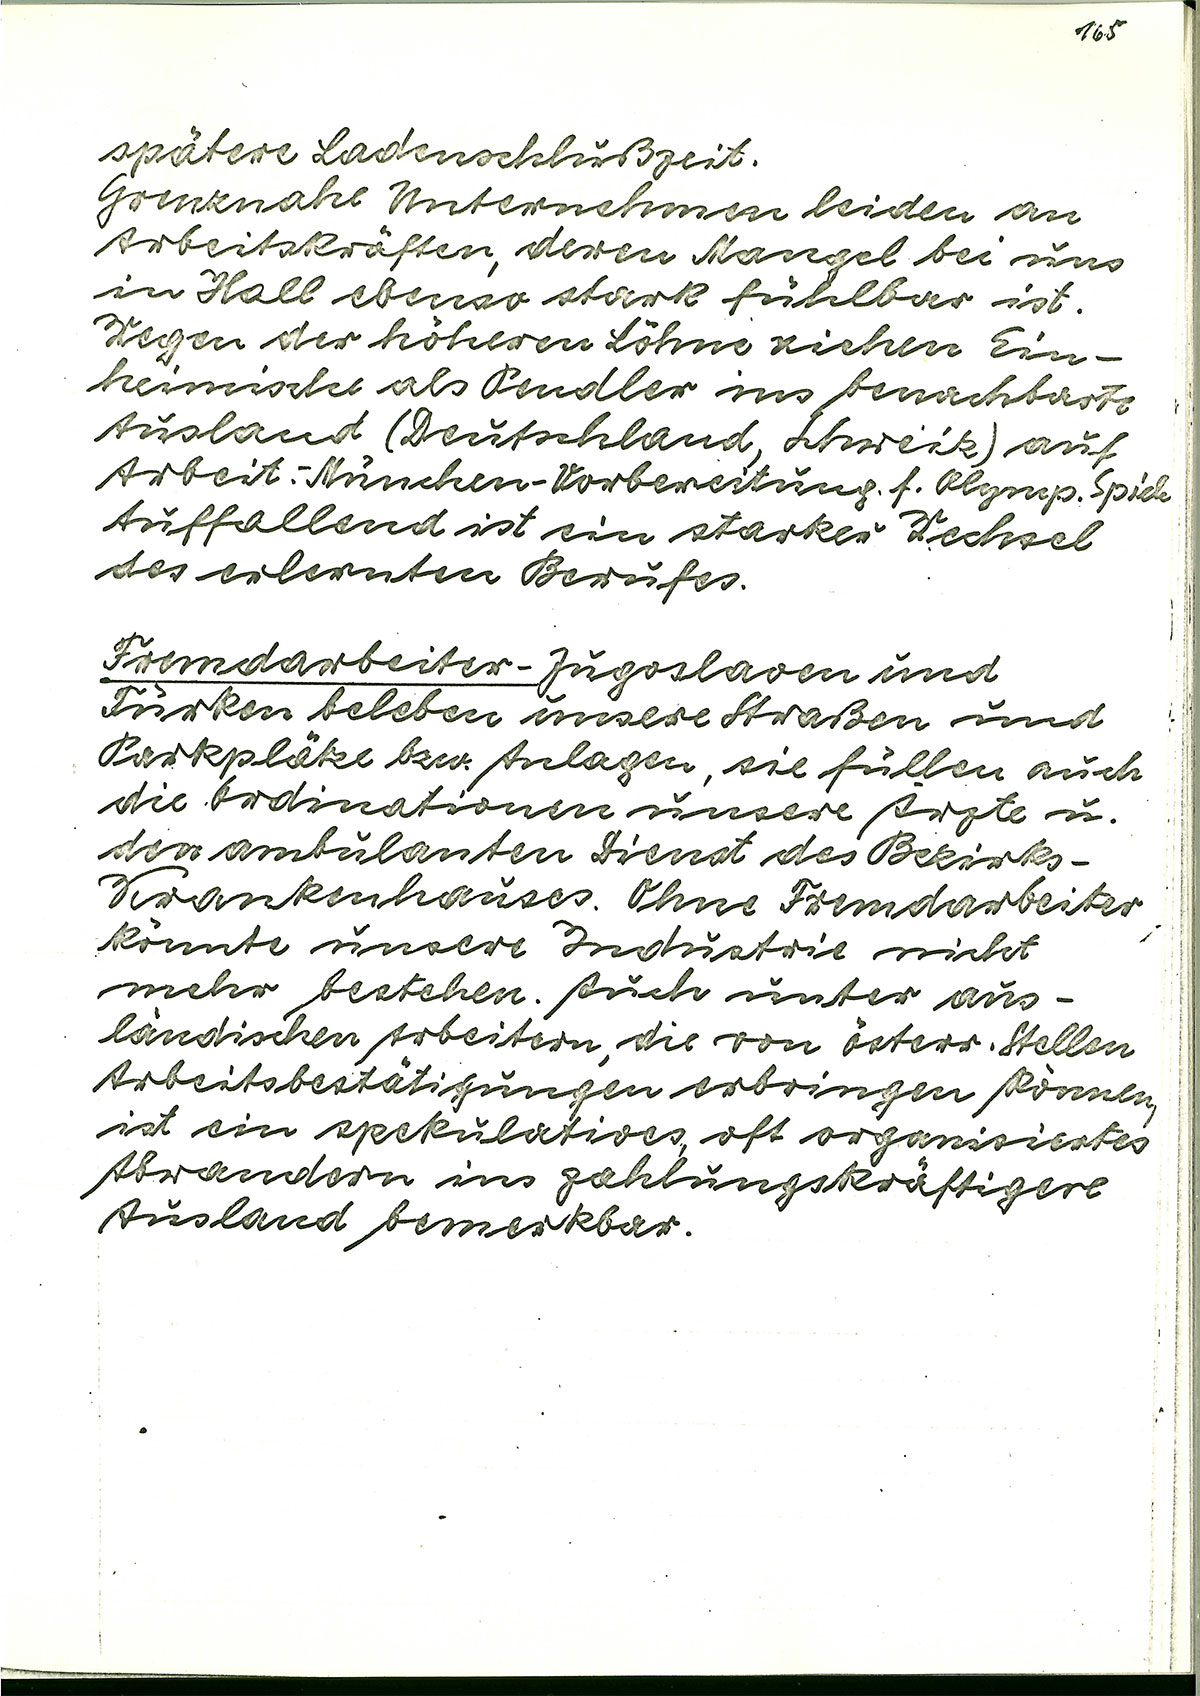 165
spätere Ladenschlußzeit.
Grenznahe Unternehmen leiden an
Arbeitskräften, deren Mangel bei uns
in Hall ebenso stark fühlbar ist.
Wegen der höheren Löhne ziehen Ein-
heimische als Pendler ins benachbarte
Ausland (Deutschland, Schweiz) auf
Arbeit.-München-Vorbereitung. f. Olymp. Spiele
Auffallend ist ein starker Wechsel
des erlernten Berufes.
Fremdarbeiter-Jugoslaven und
Türken beleben unsere Straßen und
Parkplätze bzw. Anlagen, sie füllen auch
die Ordinationen unsere Ärzte u.
den ambulanten Dienst des Bezirks-
Krankenhauses. Ohne Fremdarbeiter
könnte unsere Industrie nicht
mehr bestehen. Auch unter aus-
ländischen Arbeitern, die von österr. Stellen
Arbeitsbestätigungen erbringen können,
ist ein spekulatives, oft organisiertes
Abwandern ins zahlungskräftigere
Ausland bemerkbar.